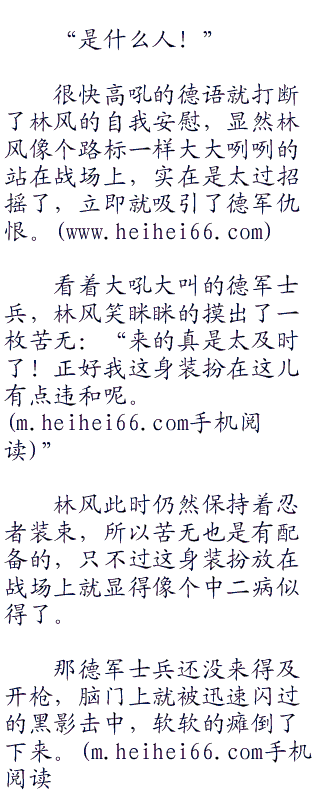 “是什么人！”
很快高吼的德语就打断
了林风的自我安慰，显然林
风像个路标一样大大咧咧的
站在战场上，实在是太过招
摇了，立即就吸引了德军仇
恨。(www.heihei66.com)
看着大吼大叫的德军士
兵，林风笑眯眯的摸出了一
枚苦无：“来的真是太及时
了！正好我这身装扮在这儿
有点违和呢。
(m.heihei66.com手机阅
读)”
林风此时仍然保持着忍
者装束，所以苦无也是有配
备的，只不过这身装扮放在
战场上就显得像个中二病似
得了。
那德军士兵还没来得及
开枪，脑门上就被迅速闪过
的黑影击中，软软的瘫倒了
下来。(m.heihei66.com手机
阅读